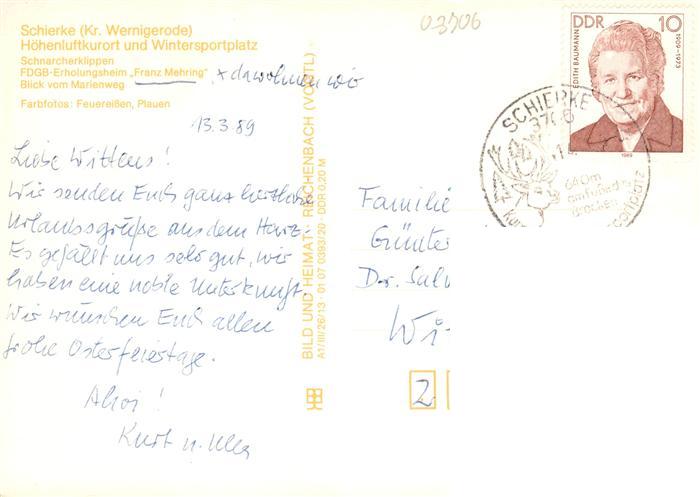 03706
Schierke (Kr. Wernigerode)
Höhenluftkurort und Wintersportplatz
Schnarcherklippen
FDGB-Erholungsheim „Franz Mehring" x da wohnen wir
Blick vom Marienweg
Farbfotos: Feuereißen, Plauen
13.3.89
Liebe Wittens!
Wir senden Euch ganz herzliche
Urlaubsgrüße aus dem Harz.
Es gefällt uns sehr gut, wir
haben eine noble Unterkunft.
Wir wünschen Euch allen
frohe Osterfeiertage.
Ahoi!
Kurt u. Ulla
BILD UND HEIMAT REICHENBACH (VOGTL)
A1/III/26/13 01 07 0393/20 DDR 0,20 M
DDR 10
EDITH BAUMANN 1909-1973
1989
SCHIERKE
3706
640m
am Fuße des
Brocken
Familie
Günter
Dr. Salv
Wi-
2